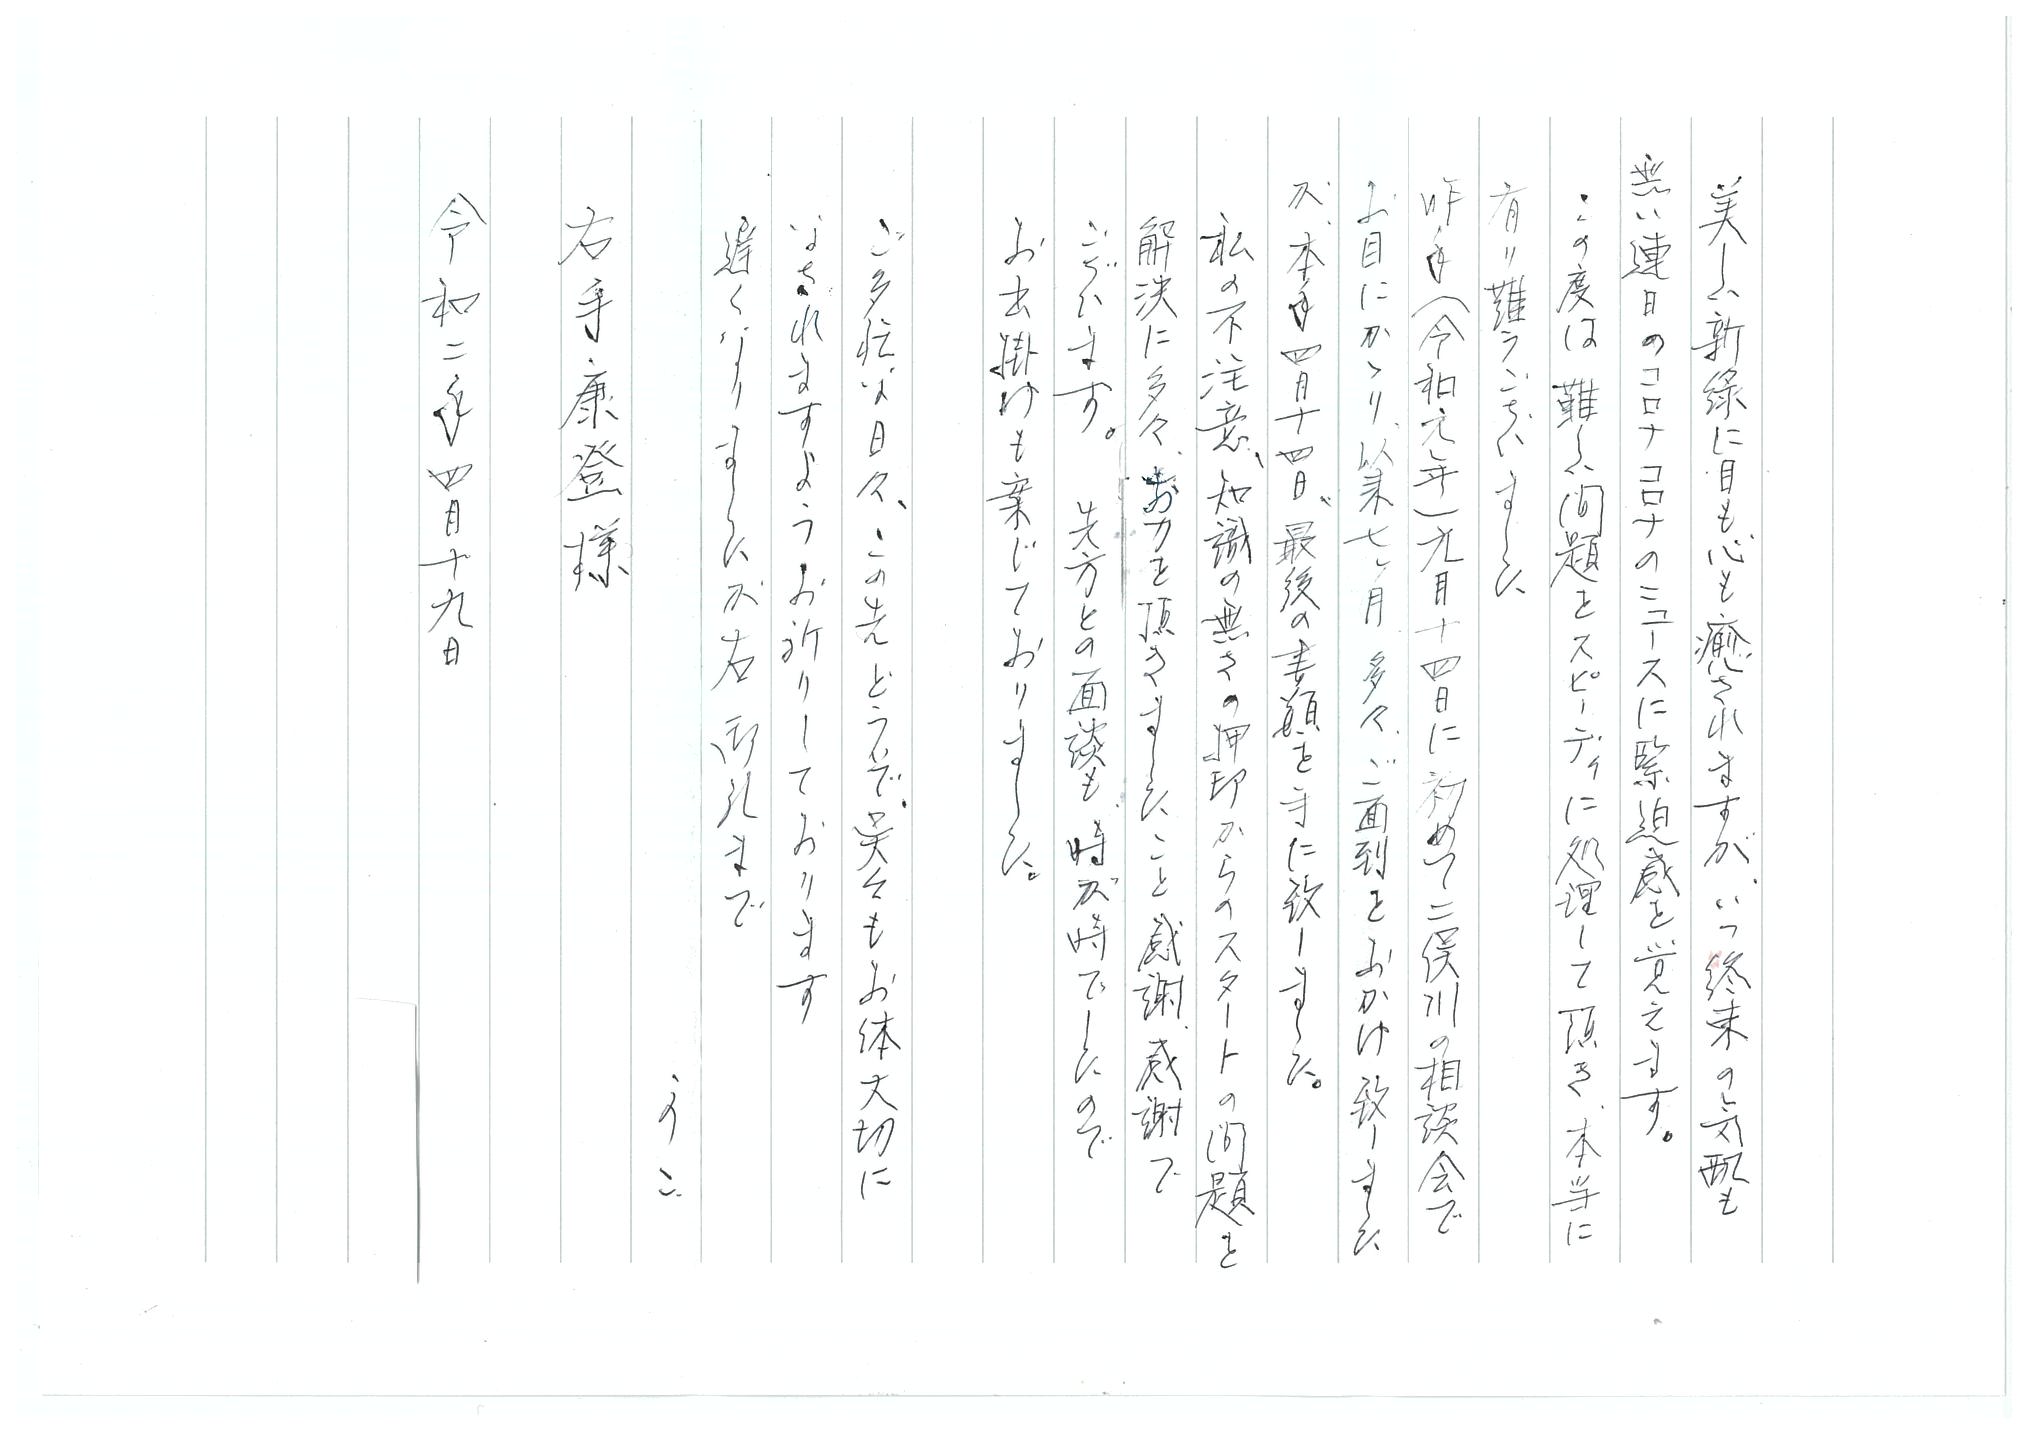 美しい新緑に目も心も癒されますが、いつ終末の気配も
無い連日のコロナコロナのニュースに緊迫感を覚えます。
この度は難しい問題をスピーディに処理して頂き、本当に
有り難うございました
昨年(令和元年)九月十四日に初めて二俣川の相談会で
お目にかゝり、以来七ヶ月 多々、ご面到をおかけ致しました
が、本年四月十四日、最後の書類を手に致しました。
私の不注意、知識の無さの押印からのスタートの問題を
解決に多々、お力を頂きましたこと感謝、感謝で
ございます。 先方との面談も、時が時でしたので
お出掛けも案じておりました。
ご多忙な日々、この先どうぞ、呉々もお体大切に
なされますようお祈りしております
遅くなりましたが右 御礼まで
かしこ
右手康登様
令和二年四月十九日